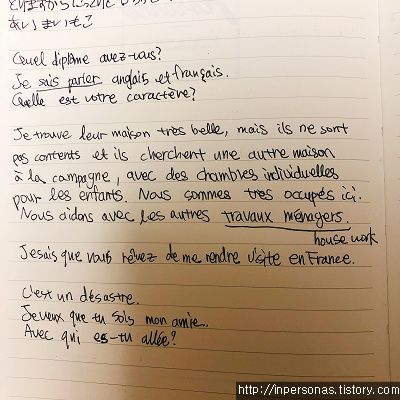 あいまいもこ
Quel diplôme avez-vous?
Je sais parler anglais et français.
Quelle est votre caractère?
Je trouve leur maison très belle, mais ils ne sont
pas contents et ils cherchent une autre maison
à la campagne, avec des chambres individuelles
pour les enfants. Nous sommes très occupés ici.
Nous aidons avec les autres travaux ménagers.
house work
Je sais que vous rêvez de me rendre visite en France.
C'est un désastre.
Je veux que tu sois mon amie.
Avec qui es-tu allée?
http://inpersonas.tistory.com